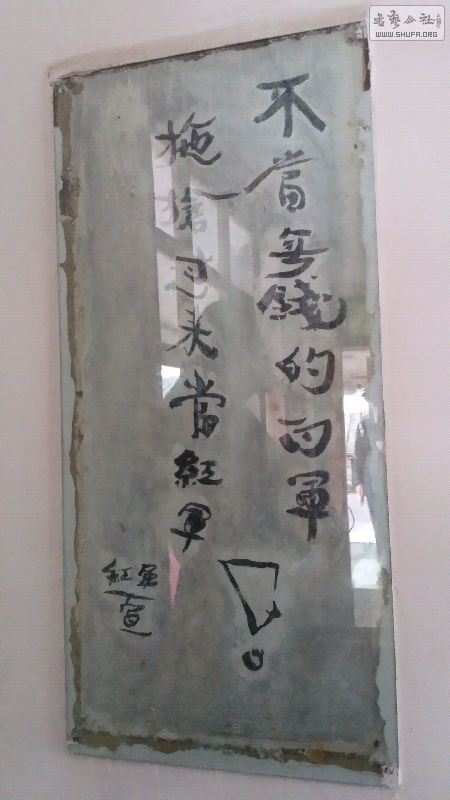 不當無錢的白軍
拖槍过来當紅軍！
紅軍宣
书艺公社
WWW.SHUFA.ORG